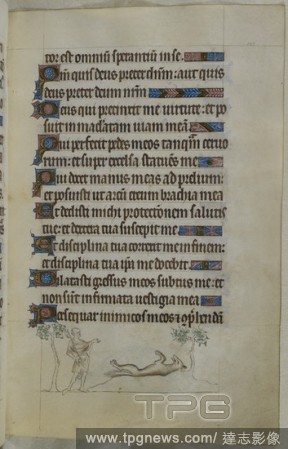 tor est omnium sperantium in se.
Qm quis deus preter dnm: aut quis
deus preter deum nrm
Deus qui precinxit me virtute: et po
suit inmaculatam uiam mea
Qui perfecit pedes meos tanqm ceruo
rum: et super excelsa statues me
Qui docet manus meas ad prelium:
et posuisti ut arcu ereum brachia mea
Et dedisti michi protectionem salutis
tue: et dextera tua suscepit me
Et disciplina tua correxit me in finem:
et disciplina tua ipa me docebit
Dilatasti gressus meos subtus me: et
non sunt infirmata uestigia mea
Persequar inimicos meos
TPG
www.tpgnews.com/ 達志影像